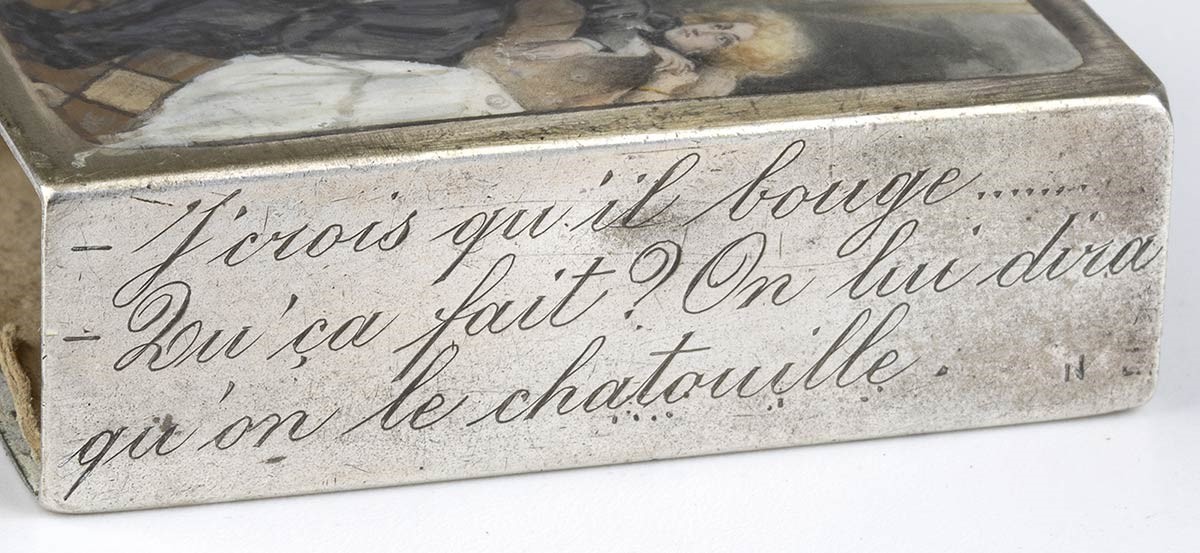 - J'crois qu'il bouge........
- Qu'ça fait? On lui dira
qu'on le chatouille.
N